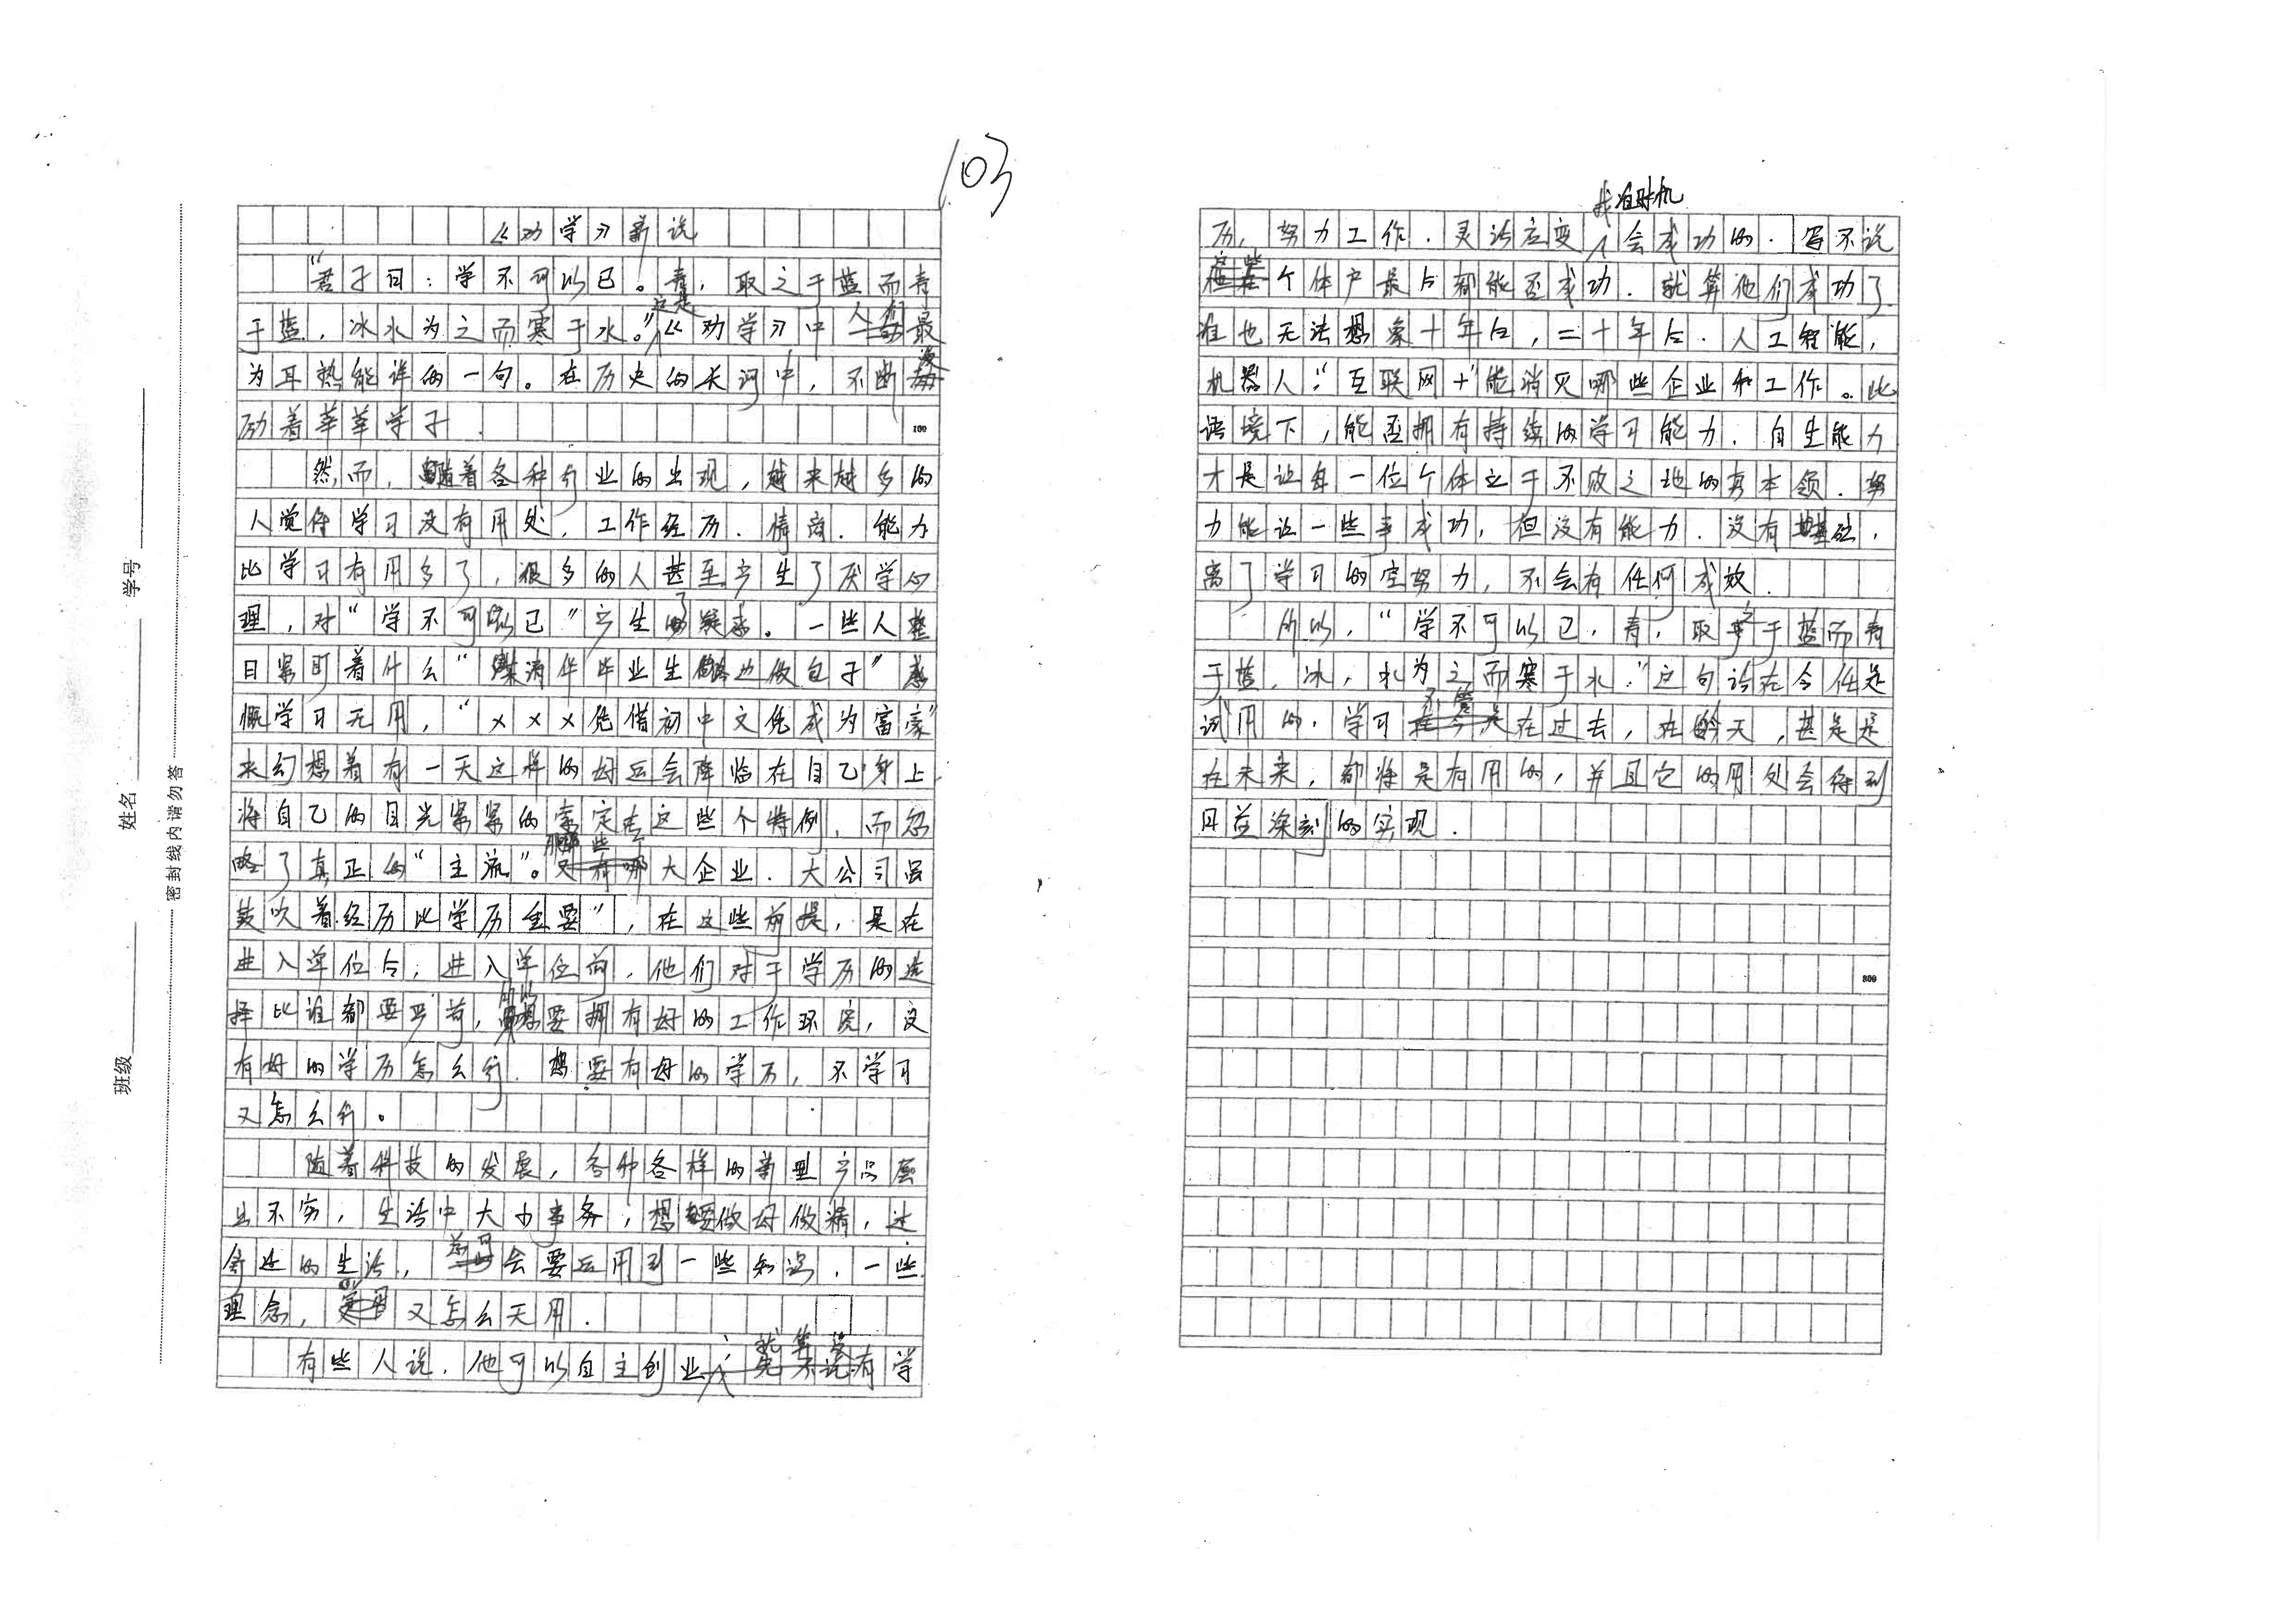 103
《劝学》新说
“君子曰：学不可以已。青，取之于蓝而青
于蓝，冰水为之而寒于水。”这是《劝学》中人们最
为耳熟能详的一句。在历史的长河中，不断激
励着莘莘学子.
100
然而，随着各种行业的出现，越来越多的
人觉得学习没有用处，工作经历、情商、能力
比学习有用多了，很多的人甚至产生了厌学心
理，对“学不可以已”产生了疑惑。一些人整
日紧盯着什么“某清华毕业生街边做包子”感
慨学习无用，“×××凭借初中文凭成为富豪”
来幻想着有一天这样的好运会降临在自己身上
将自己的目光紧紧的索定在这些个特例，而忽
略了真正的“主流”。那些大企业、大公司虽
鼓吹着经历比学历重要”，在这些前提，是在
进入单位后，进入单位前，他们对于学历的选
择比谁都要严苛，所以想要拥有好的工作环境，没
有好的学历怎么行.想要有好的学历，不学习
又怎么行。
随着科技的发展，各种各样的新型产品层
出不穷，生活中大小事务，想要做好做精，过
舒适的生活，会要运用到一些知识、一些
理念，又怎么无用.
有些人说，他可以自主创业，就算没有学
历，努力工作、灵活应变、找准时机会成功的.暂不说
这些个体户最后都能否成功.就算他们成功了
谁也无法想象十年后，二十年后.人工智能，
机器人“互联网+”能消灭哪些企业和工作。此
语境下，能否拥有持续的学习能力、自生能力
才是让每一位个体立于不败之地的真本领.努
力能让一些事成功，但没有能力、没有基础，
离了学习的空努力，不会有任何成效.
所以，“学不可以已.青，取之于蓝而青
于蓝，冰，水为之而寒于水.”这句话在今任是
试用的.学习不管是在过去，在今天，甚是是
在未来，都将是有用的，并且它的用处会得到
日益深刻的实现.
800
班级
姓名
学号
密封线内请勿答